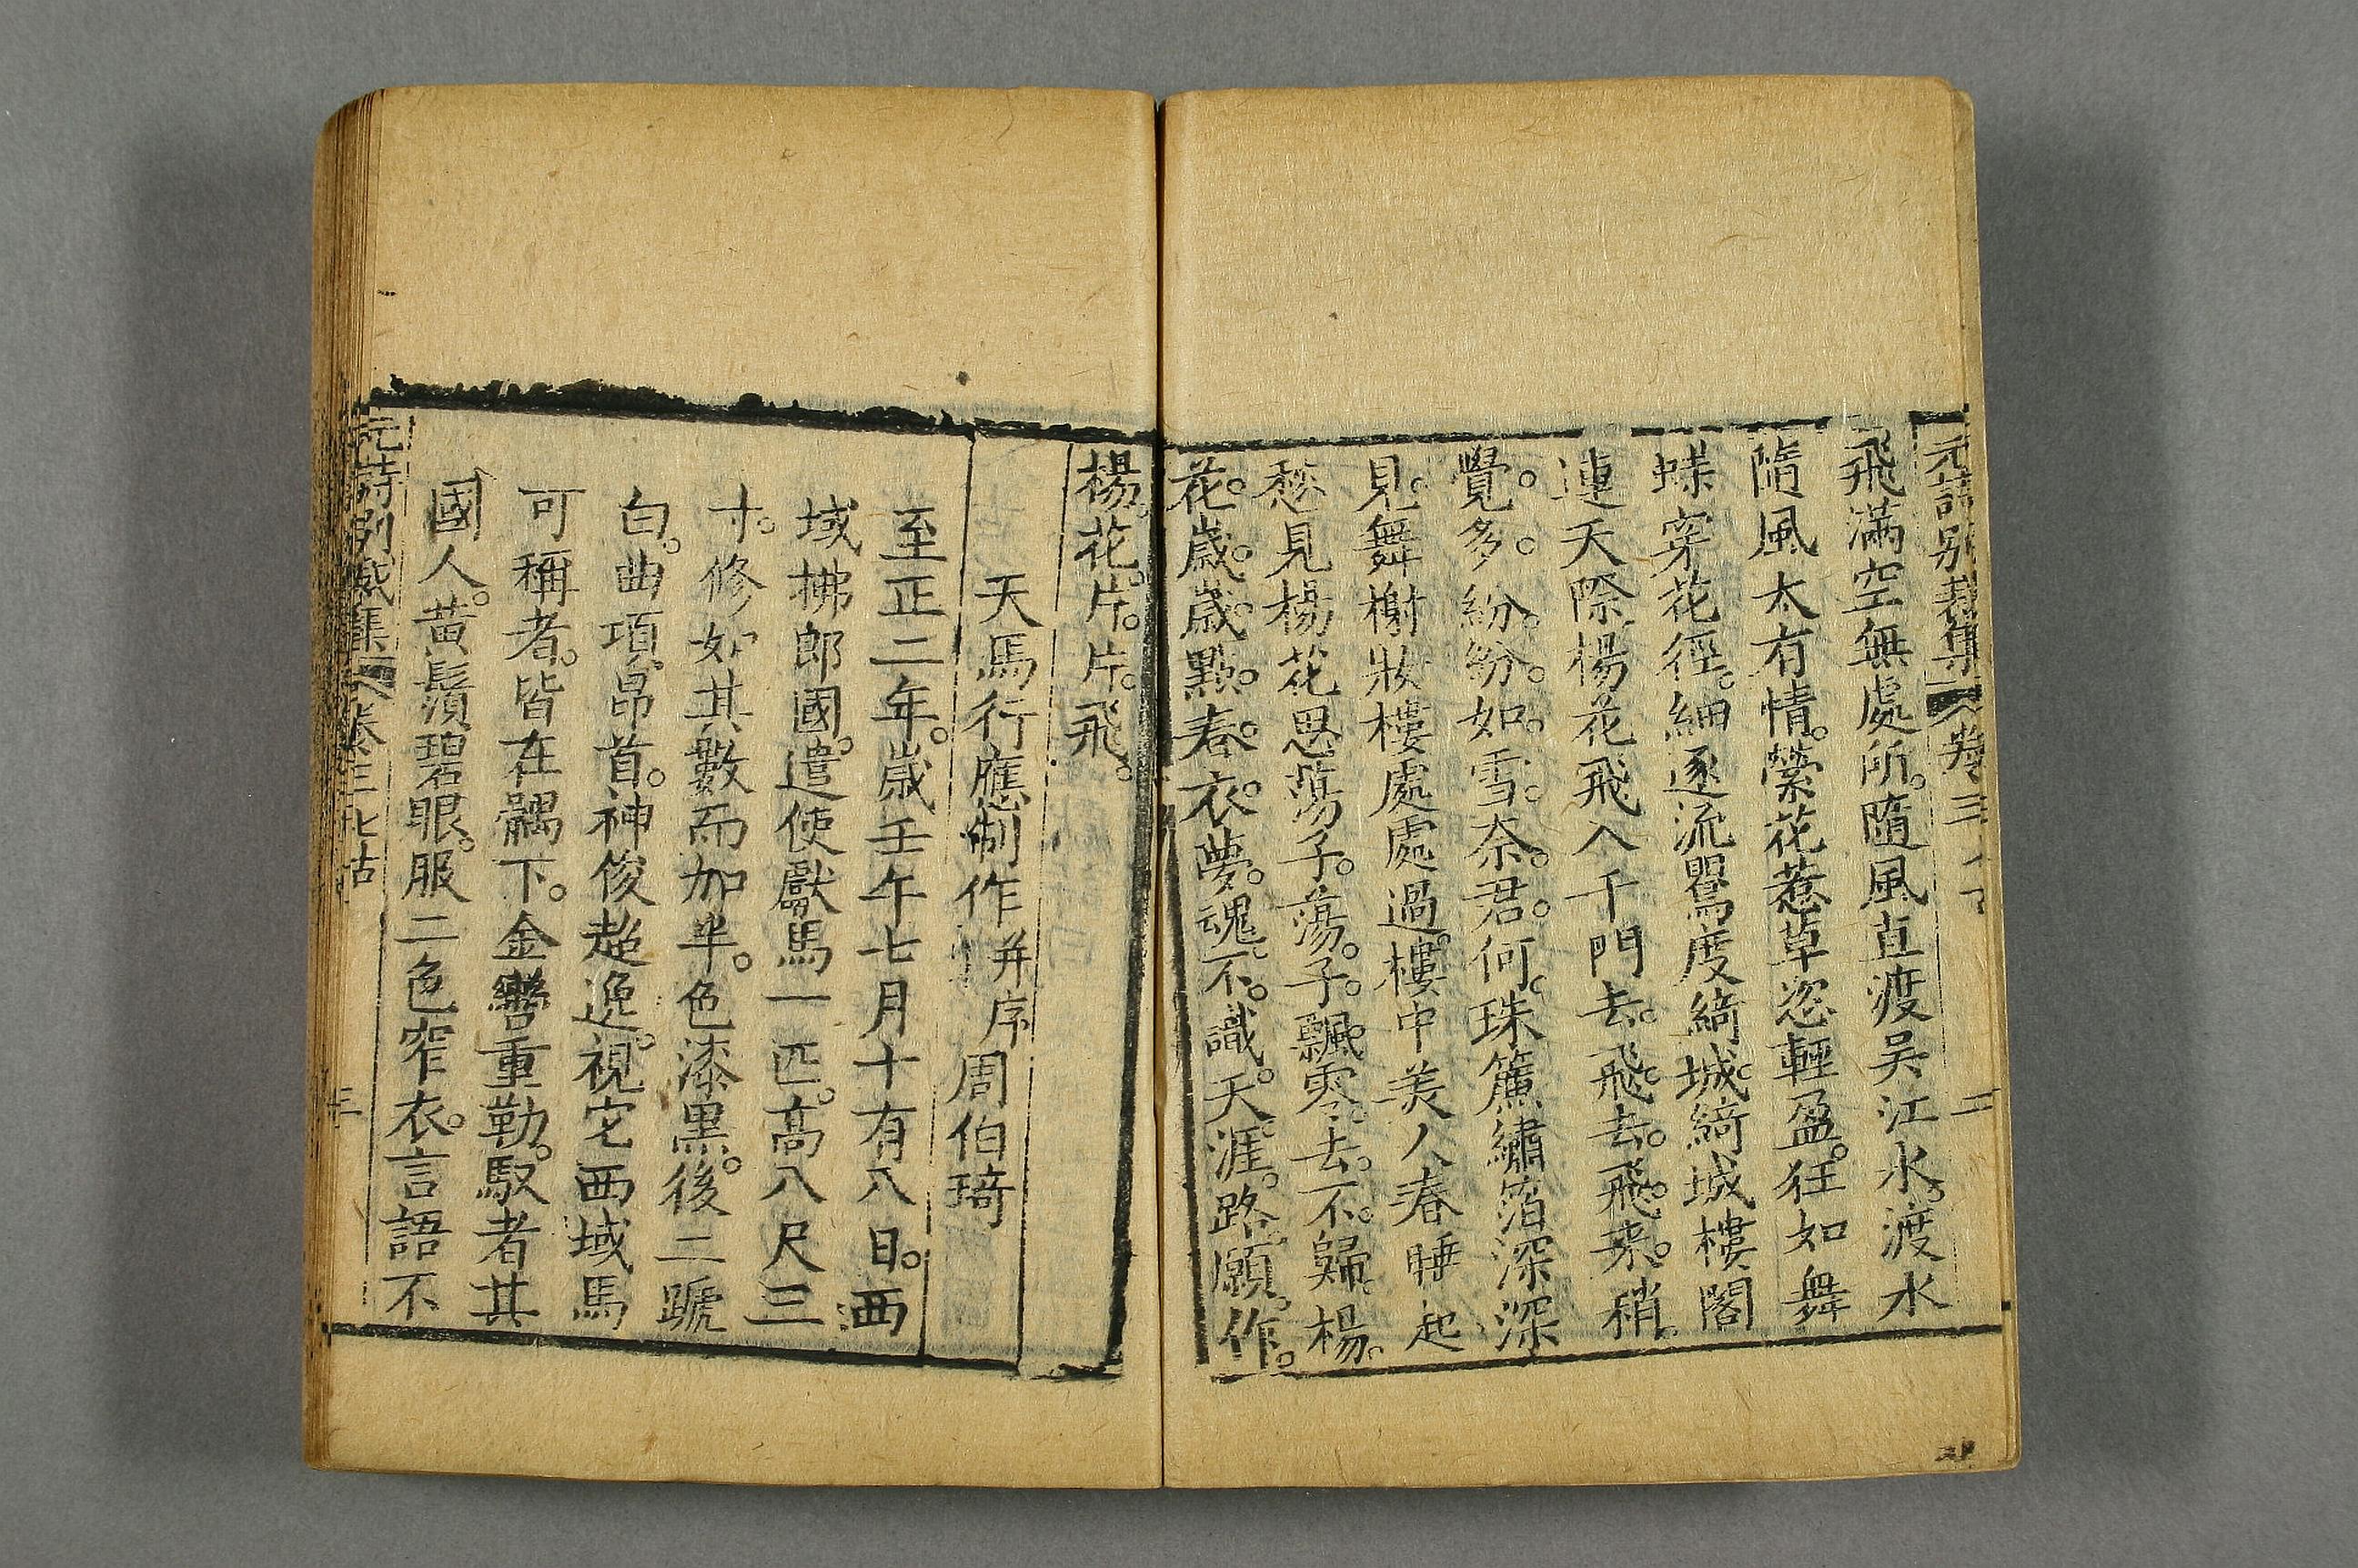 元詩別裁集 卷三 二
飛滿空無處所。隨風直渡吴江水。渡水
隨風太有情。縈花惹草恣輕盈。狂如舞
蝶穿花徑。細逐流鶯度綺城。綺城樓閣
連天際楊花飛入千門去。飛去。飛來。稍。
覺。多。紛。紛。如。雪。奈。君。何。珠簾繡箔深深
見。舞榭妝樓處處過。樓中美人春睡起
愁見楊花思蕩子。蕩。子。飄。零。去。不。歸。楊。
花。歲。歲。點。春。衣。夢。魂。不。識。天。涯。路。願。作。
楊。花。片。片。飛。
天馬行應制作并序 周伯琦
至正二年。歲壬午七月十有八日。西
域拂郎國。遣使獻馬一匹。高八尺三
寸。修如其數而加半。色漆黑。後二蹏
白。曲項昂首。神俊超逸。視它西域馬
可稱者。皆在髃下。金轡重勒。馭者其
國人。黃鬚碧眼。服二色窄衣。言語不
元詩別裁集 卷三七古 三